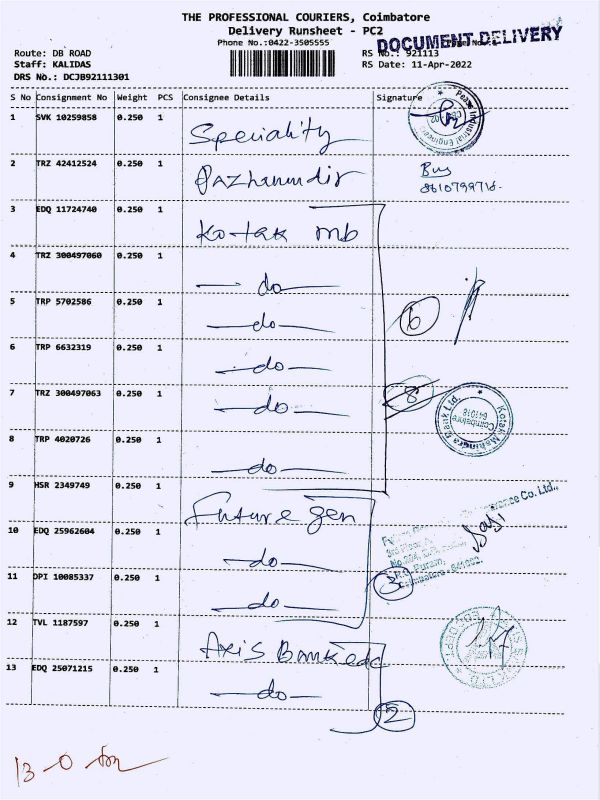 THE PROFESSIONAL COURIERS, Coimbatore
Delivery Runsheet - PC2
Phone No.:0422-3505555
DOCUMENT DELIVERY
Route: DB ROAD
RS No.: 921113
Staff: KALIDAS
RS Date: 11-Apr-2022
DRS No.: DCJB92111301
S No Consignment No Weight PCS Consignee Details Signature
1 SVK 10259858 0.250 1 Speciality
2 TRZ 42412524 0.250 1 Pazhamudir
8610799716
3 EDQ 11724740 0.250 1 Kotak mb
4 TRZ 300497060 0.250 1 do
5 TRP 5702586 0.250 1 do
6
6 TRP 6632319 0.250 1 do
7 TRZ 300497063 0.250 1 do
8
Kotak Mahindra Bank Ltd.
Coimbatore
641018
8 TRP 4020726 0.250 1 do
9 HSR 2349749 0.250 1 Future gen
10 EDQ 25962604 0.250 1 do
11 DPI 10085337 0.250 1 do
3
12 TVL 1187597 0.250 1 Axis Bank
13 EDQ 25071215 0.250 1 do
2
13 - 0